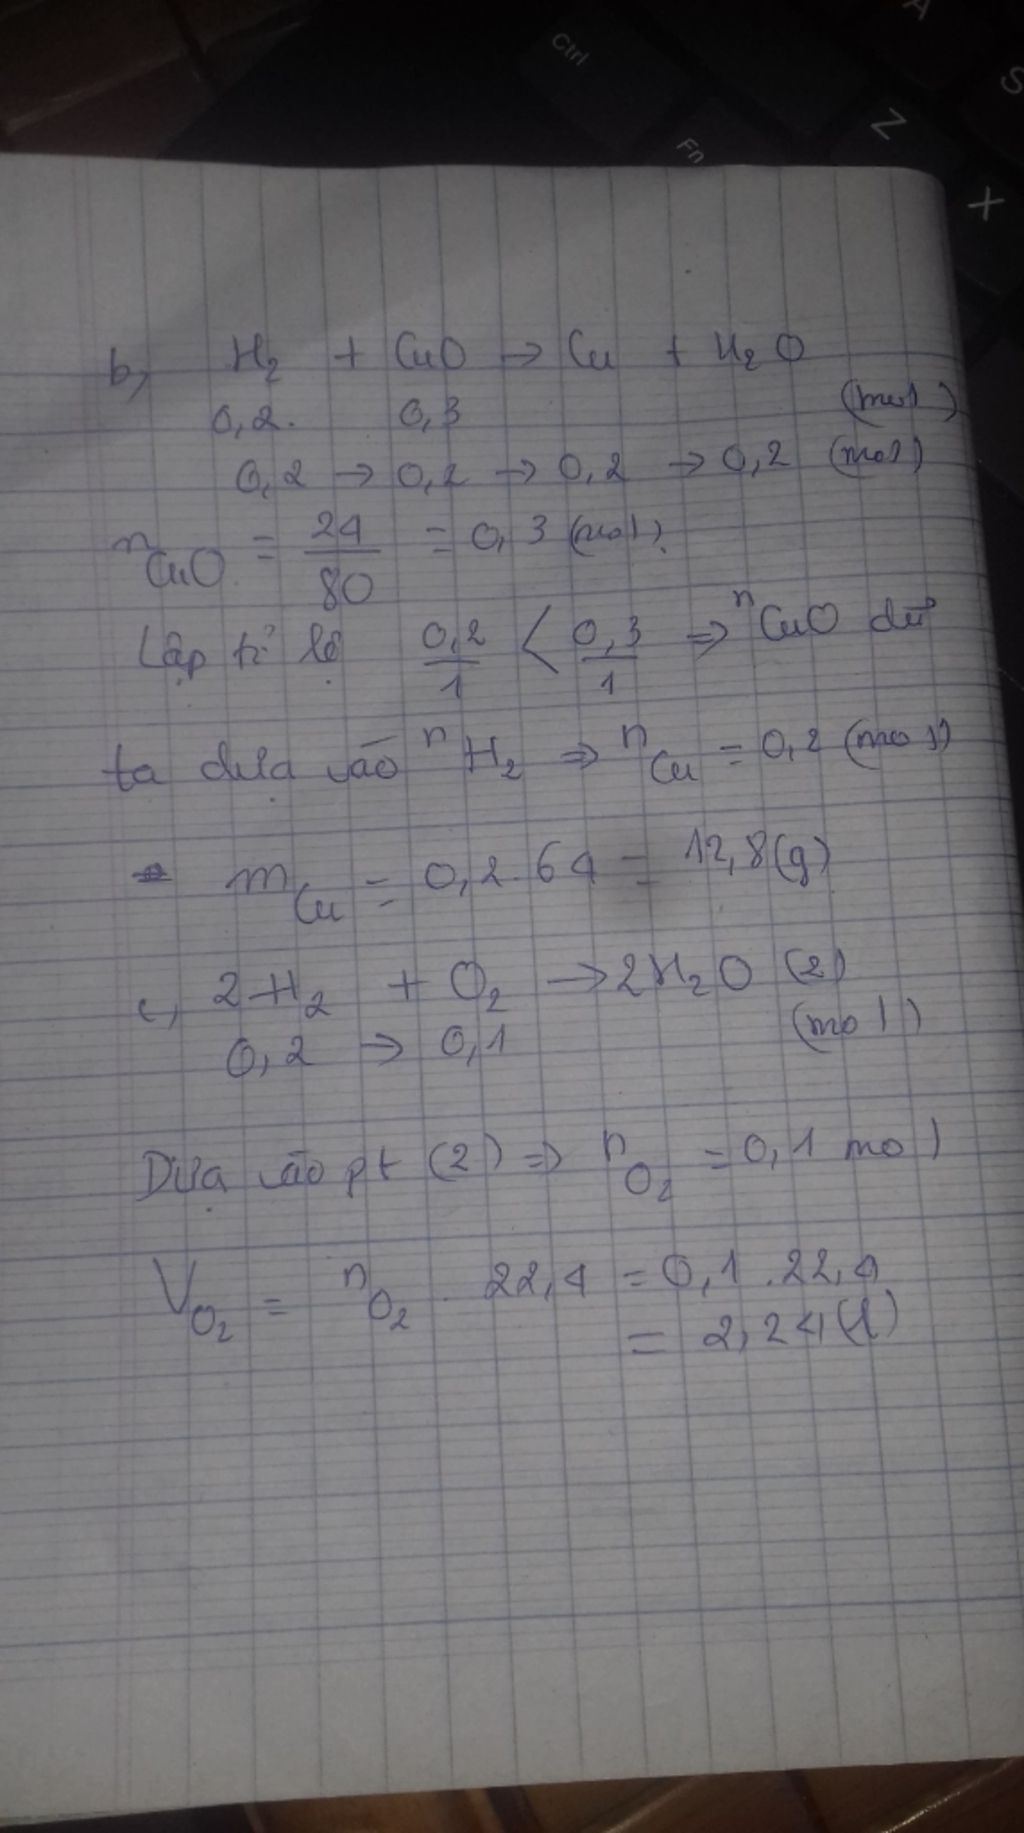 Ctrl
A
S
Fn
Z
X
b, H₂ + CuO → Cu + H₂O
0,2. 0,3 (mol)
0,2 → 0,2 → 0,2 → 0,2 (mol)
nCuO = 24/80 = 0,3 (mol).
Lập tỉ lệ 0,2/1 < 0,3/1 ⇒ nCuO dư
ta dựa vào nH₂ ⇒ nCu = 0,2 (mol)
mCu = 0,2.64 = 12,8(g)
c, 2H₂ + O₂ → 2H₂O (2)
0,2 → 0,1 (mol)
Dựa vào pt (2) ⇒ nO₂ = 0,1 mol
VO₂ = nO₂ . 22,4 = 0,1 .22,4
= 2,24(l)